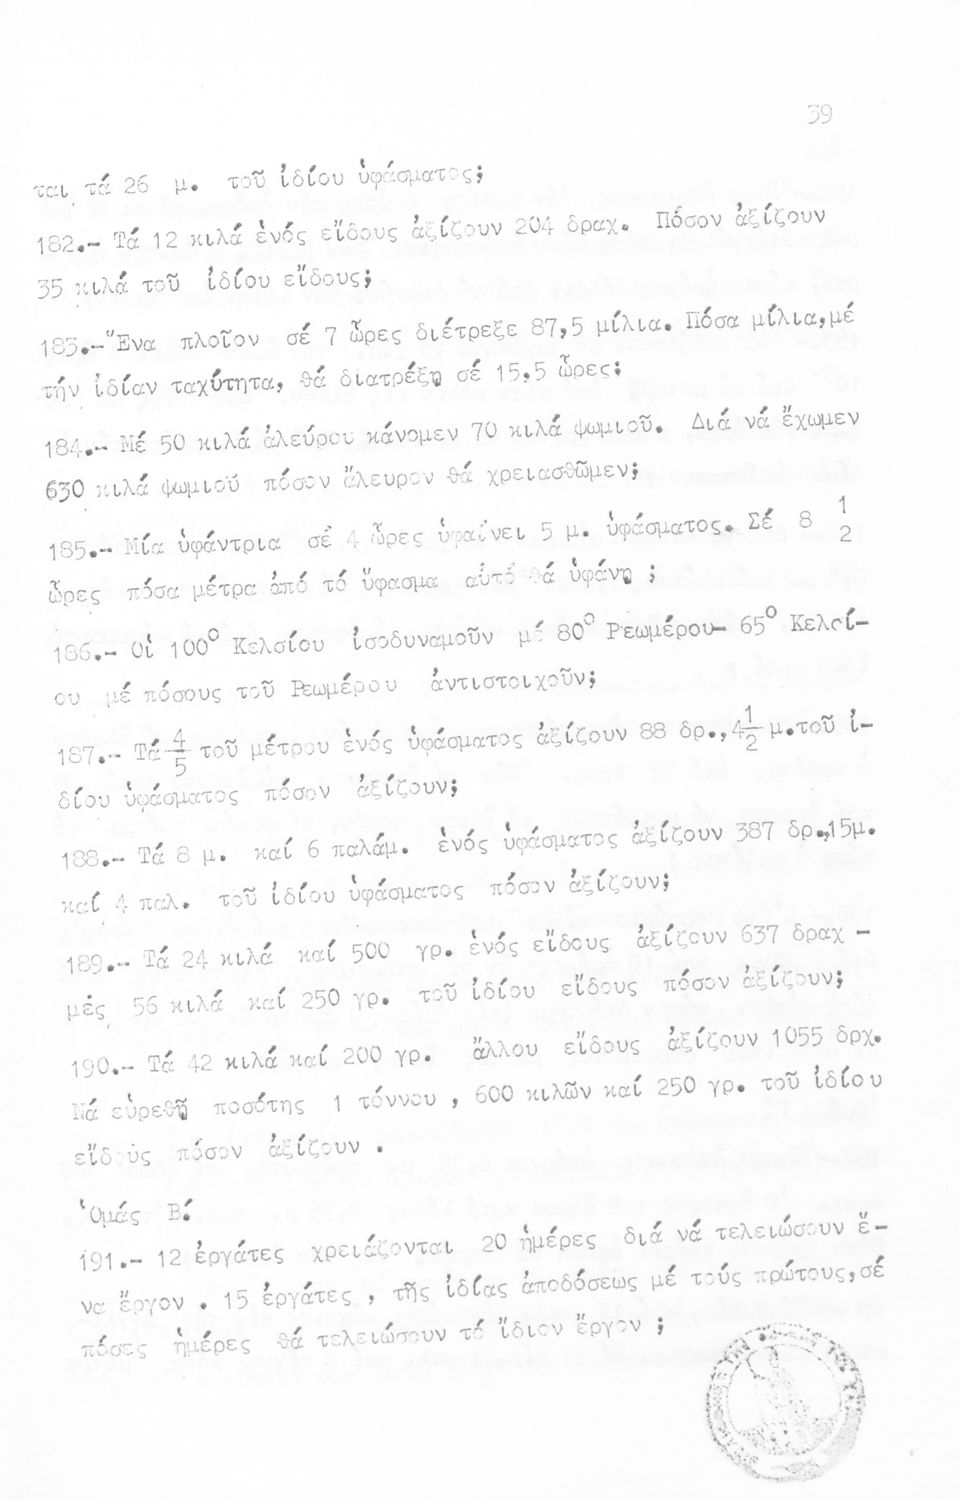 39
ται τά 26 μ. τοῦ ἰδίου ὑφάσματος;
182.- Τά 12 κιλά ἑνός εἴδους ἀξίζουν 204 δραχ. Πόσον ἀξίζουν
35 κιλά τοῦ ἰδίου εἴδους;
183.-Ἕνα πλοῖον σέ 7 ὧρες διέτρεξε 87,5 μίλια. Πόσα μίλια,μέ
τήν ἰδίαν ταχύτητα, θά διατρέξῃ σέ 15,5 ὧρες;
184.- Μέ 50 κιλά ἀλεύρου κάνομεν 70 κιλά ψωμιοῦ. Διά νά ἔχωμεν
630 κιλά ψωμιοῦ πόσον ἄλευρον θά χρειασθῶμεν;
185.- Μία ὑφάντρια σέ 4 ὧρες ὑφαίνει 5 μ. ὑφάσματος. Σέ 8 1/2
ὧρες πόσα μέτρα ἀπό τό ὕφασμα αὐτό θά ὑφάνῃ ;
186.- Οἱ 100° Κελσίου ἰσοδυναμοῦν μέ 80° Ρεωμέρου- 65° Κελσί-
ου μέ πόσους τοῦ Ρεωμέρου ἀντιστοιχοῦν;
187.- Τά 4/5 τοῦ μέτρου ἑνός ὑφάσματος ἀξίζουν 88 δρ.,4 1/2 μ.τοῦ ἰ-
δίου ὑφάσματος πόσον ἀξίζουν;
188.- Τά 8 μ. καί 6 παλάμ. ἑνός ὑφάσματος ἀξίζουν 387 δρ.,15μ.
καί 4 παλ. τοῦ ἰδίου ὑφάσματος πόσον ἀξίζουν;
189.- Τά 24 κιλά καί 500 γρ. ἑνός εἴδους ἀξίζουν 637 δραχ -
μές 56 κιλά καί 250 γρ. τοῦ ἰδίου εἴδους πόσον ἀξίζουν;
190.- Τά 42 κιλά καί 200 γρ. ἄλλου εἴδους ἀξίζουν 1055 δρχ.
Νά εὑρεθῇ ποσότης 1 τόννου , 600 κιλῶν καί 250 γρ. τοῦ ἰδίου
εἴδους πόσον ἀξίζουν .
Ὁμάς Β΄
191.- 12 ἐργάτες χρειάζονται 20 ἡμέρες διά νά τελειώσουν ἕ-
να ἔργον . 15 ἐργάτες , τῆς ἰδίας ἀποδόσεως μέ τούς πρώτους,σέ
πόσες ἡμέρες θά τελειώσουν τό ἴδιον ἔργον ;